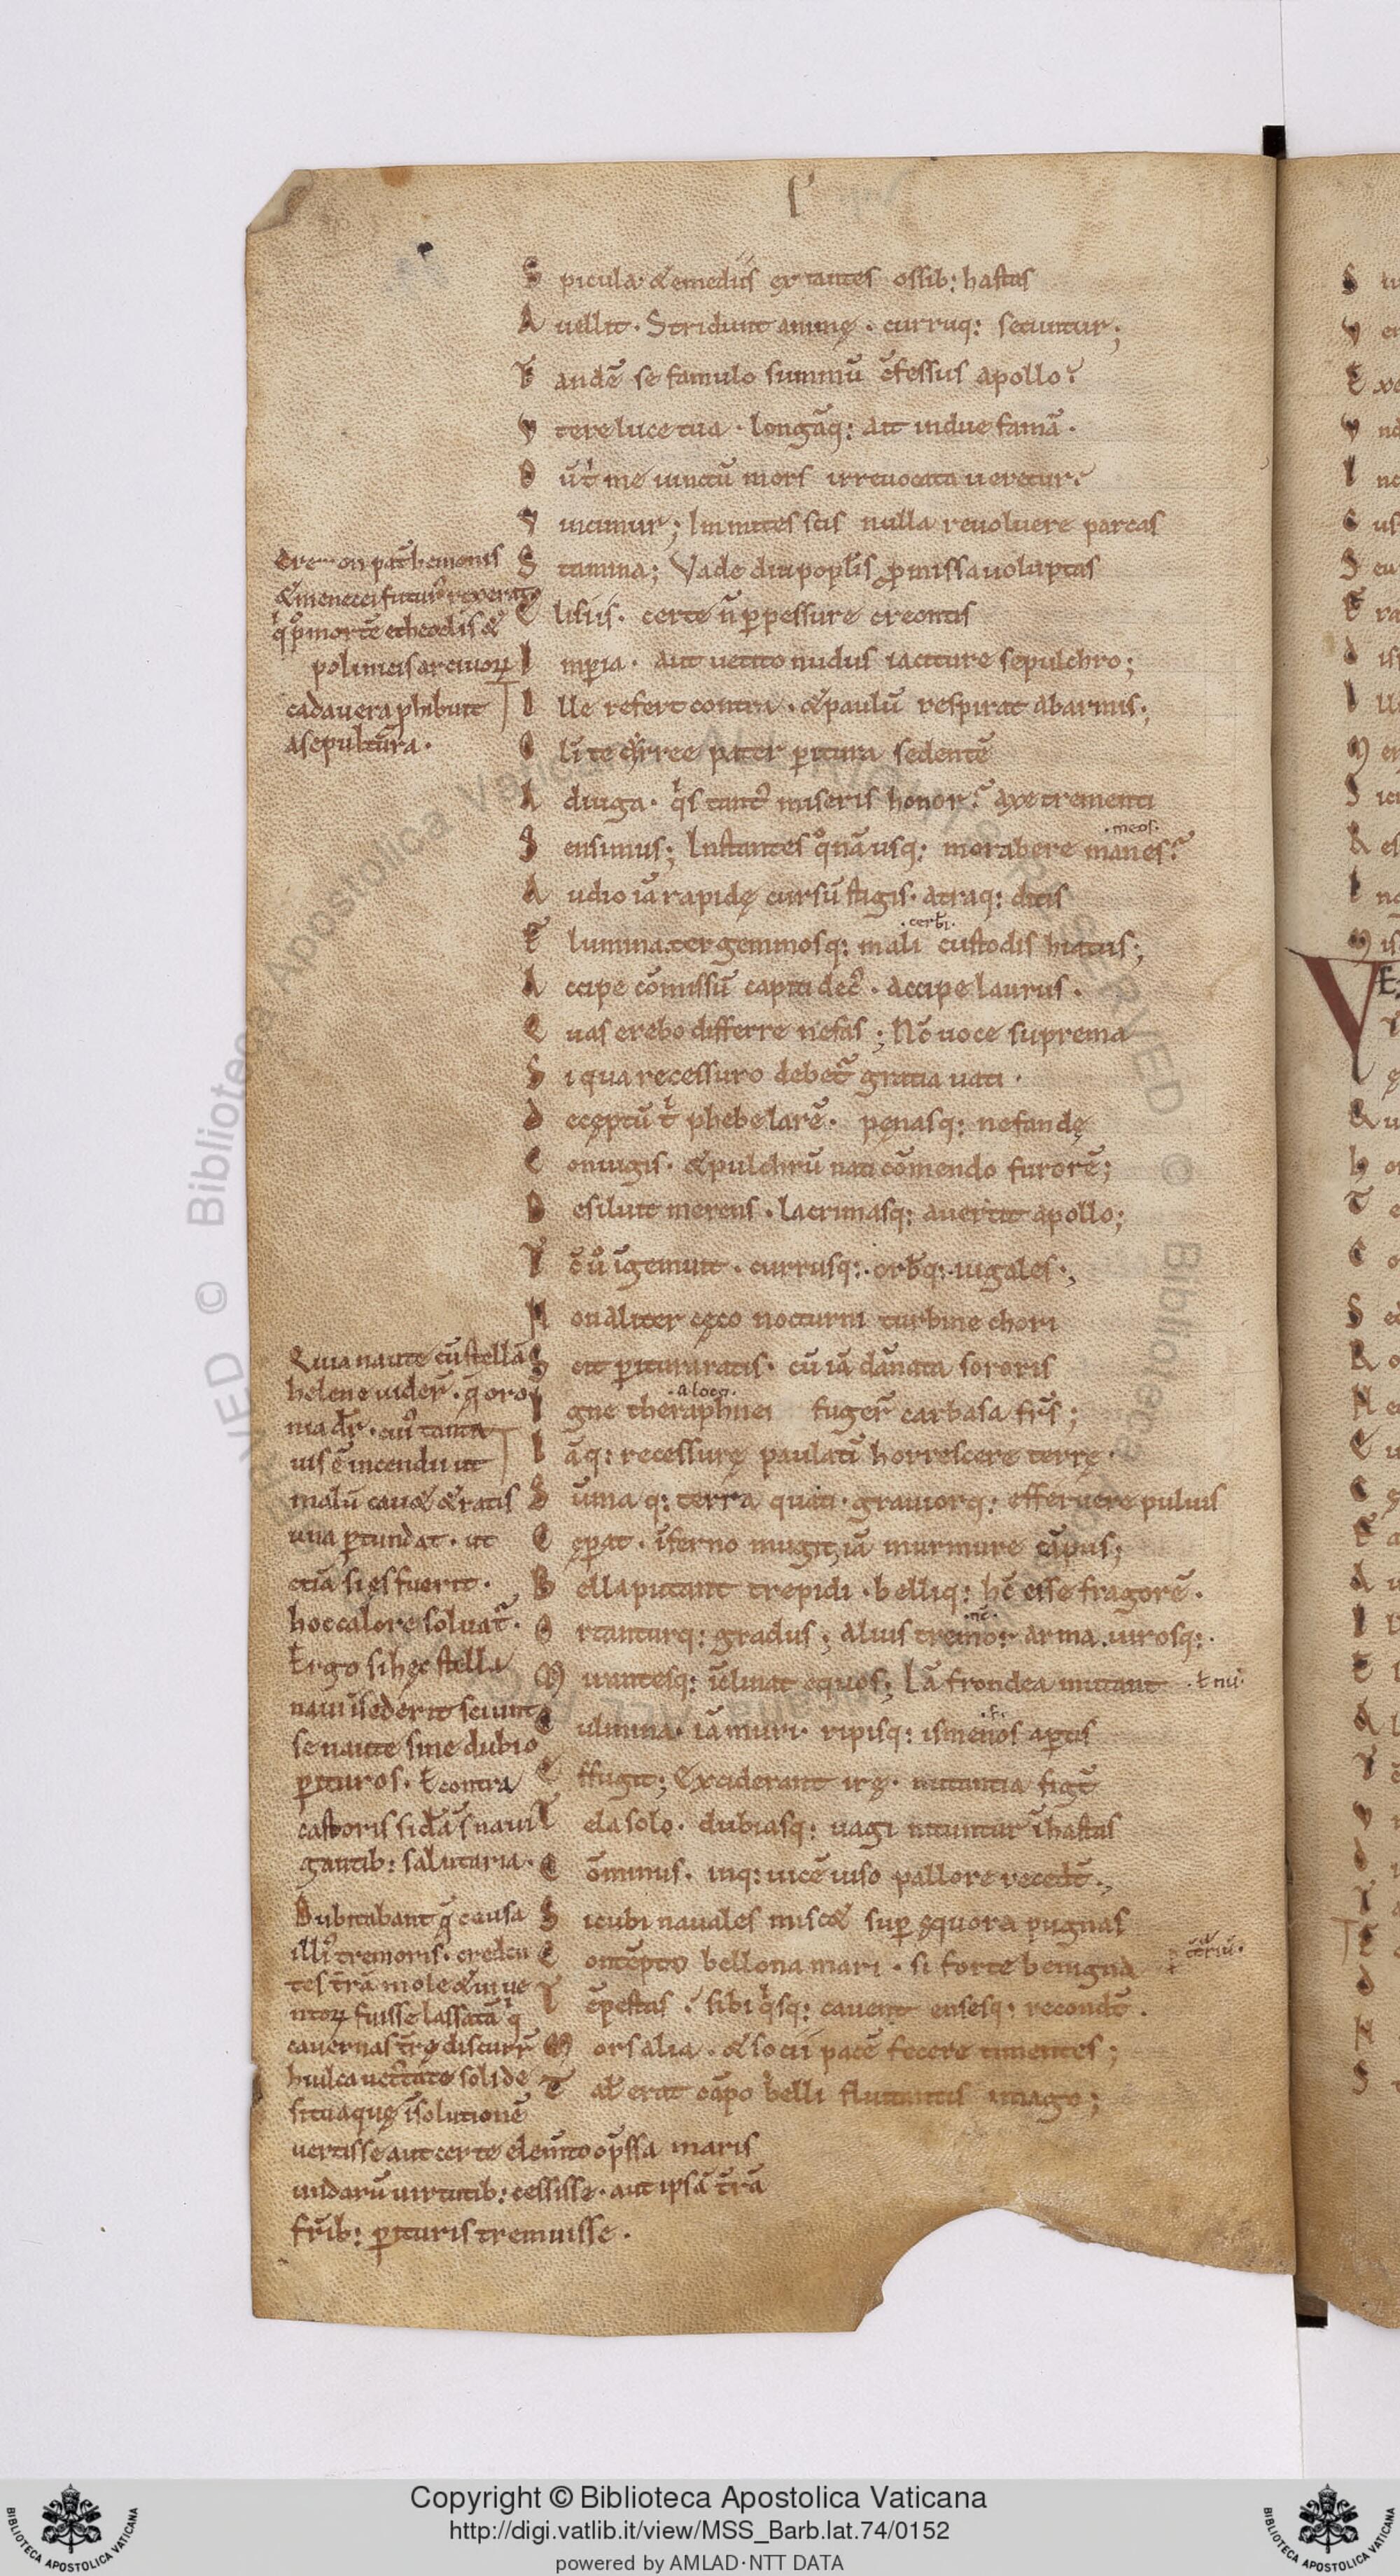 S picula & emediis extantes ossib: hastas
A uellit. Stridunt animę. currúq: secuntur;
T andē se famulo summū c̄fessus apollo?
V tere luce tua. longāq: ait indue famā.
D ū t̄ me iunctū mors irreuocata ueretur.
V incimur; Inmites scis nulla reuoluere parcas
S tamina; Vade diu popl̄is ꝓmissa uoluptas
E lisiis. certe n̄ ꝑpessure creontis
I mꝑia. aut uetito nudus iaciture sepulchro;
I lle refert contra. & paulū respirat abarmis.;
O lī te cyrree pater ꝑitura sedentē
A diuga. q̄s tant' miseris honor? axe trementi
S ensimus; Instantes q°nā usq: morabere manes?
.meos.
A udio iā rapidę cursū stigis. atraq: ditis
F lumina. ter gemmosq: mali custodis hiatus;
.cerbi.
A ccipe cōmissū capiti dec'. accipe laurus.
Q uas erebo differre nefas; Nc̄ uoce suprema
S i qua recessuro debet̄ gratia uati.
d eceptū t̄ phebe larē. pęnasq: nefandę
C oniugis. & pulchrū nati cōmendo furorē;
D esiluit merens. lacrimasq: auertit apollo;
T c̄ ū° īgemuit. currusq: orbq: iugales.;
N on aliter cęco nocturni turbine chori
S cit ꝑitura ratis. cū iā dānata sororis
I gne theraphnei fuger̄ carbasa fr̄s;
.a loco.
I āq: recessurę paulatī horrescere terrę.
S ūma q: terra quati. grauiorq: efferuere puluis
C ępat. īferno mugit iā murmure cāpus;
B ella putant trepidi. belliq: hc̄ esse fragorē.
O rtanturq: gradus; alius tremor arma. uirosq:.
M irantesq: īclinat equos; Iā frondea mutant
C ulmina. iā muri. ripisq: ismenos aꝑtis
E ffugit; Exciderant irę. nutantia figt̄
T ela solo. dubiasq: uagi nituntur ī hastas
C ōminus. inq: uicē uiso pallore recedt̄.;
S icubi nauales misc& suꝑ ęquora pugnas
C ontēpto bellona mari. si forte benigna
T ēpestas? sibi q̄sq: cauent ensesq: recondt̄.
M ors alia. & socii pacē fecere timentes;
T al' erat cāpo belli fluitantis imago;
creon pat̄ hemonis
& menecei futur' rex erat
q̄ p̄ mortē etheodis &
polinicis arciuoꝝ
cadauera ꝓhibuit
a sepultūra.
Quia naute cū stellā
helene uider̄. q̄ oro
nia dr̄. cui' tanta
uis ē incendii ut
malū cau& & ratis
una ꝑtundat. ut
etiā si es fuerit.
hoc calore soluat̄.
Ergo si hęc stella
naui īsederit sciunt
se naute sine dubio
ꝑituros. E contra
castoris sid'a s̄ naui
gantib: salutaria.
Dubitabant q̄ causa
illi' tremoris. creden
tes t̄rā mole & iu ue
ntoꝝ fuisse lassatā
cauernas t̄rę discurr̄
hiulca uet'tate solide
situaquę īsolutionē
uertisse aut certe elem̄to op̄ssa maris
undarū uirtutib: cessisse. aut ipsā t̄rā
fr̄ib: ꝑituris tremuisse.
Copyright © Biblioteca Apostolica Vaticana
http://digi.vatlib.it/view/MSS_Barb.lat.74/0152
powered by AMLAD·NTT DATA